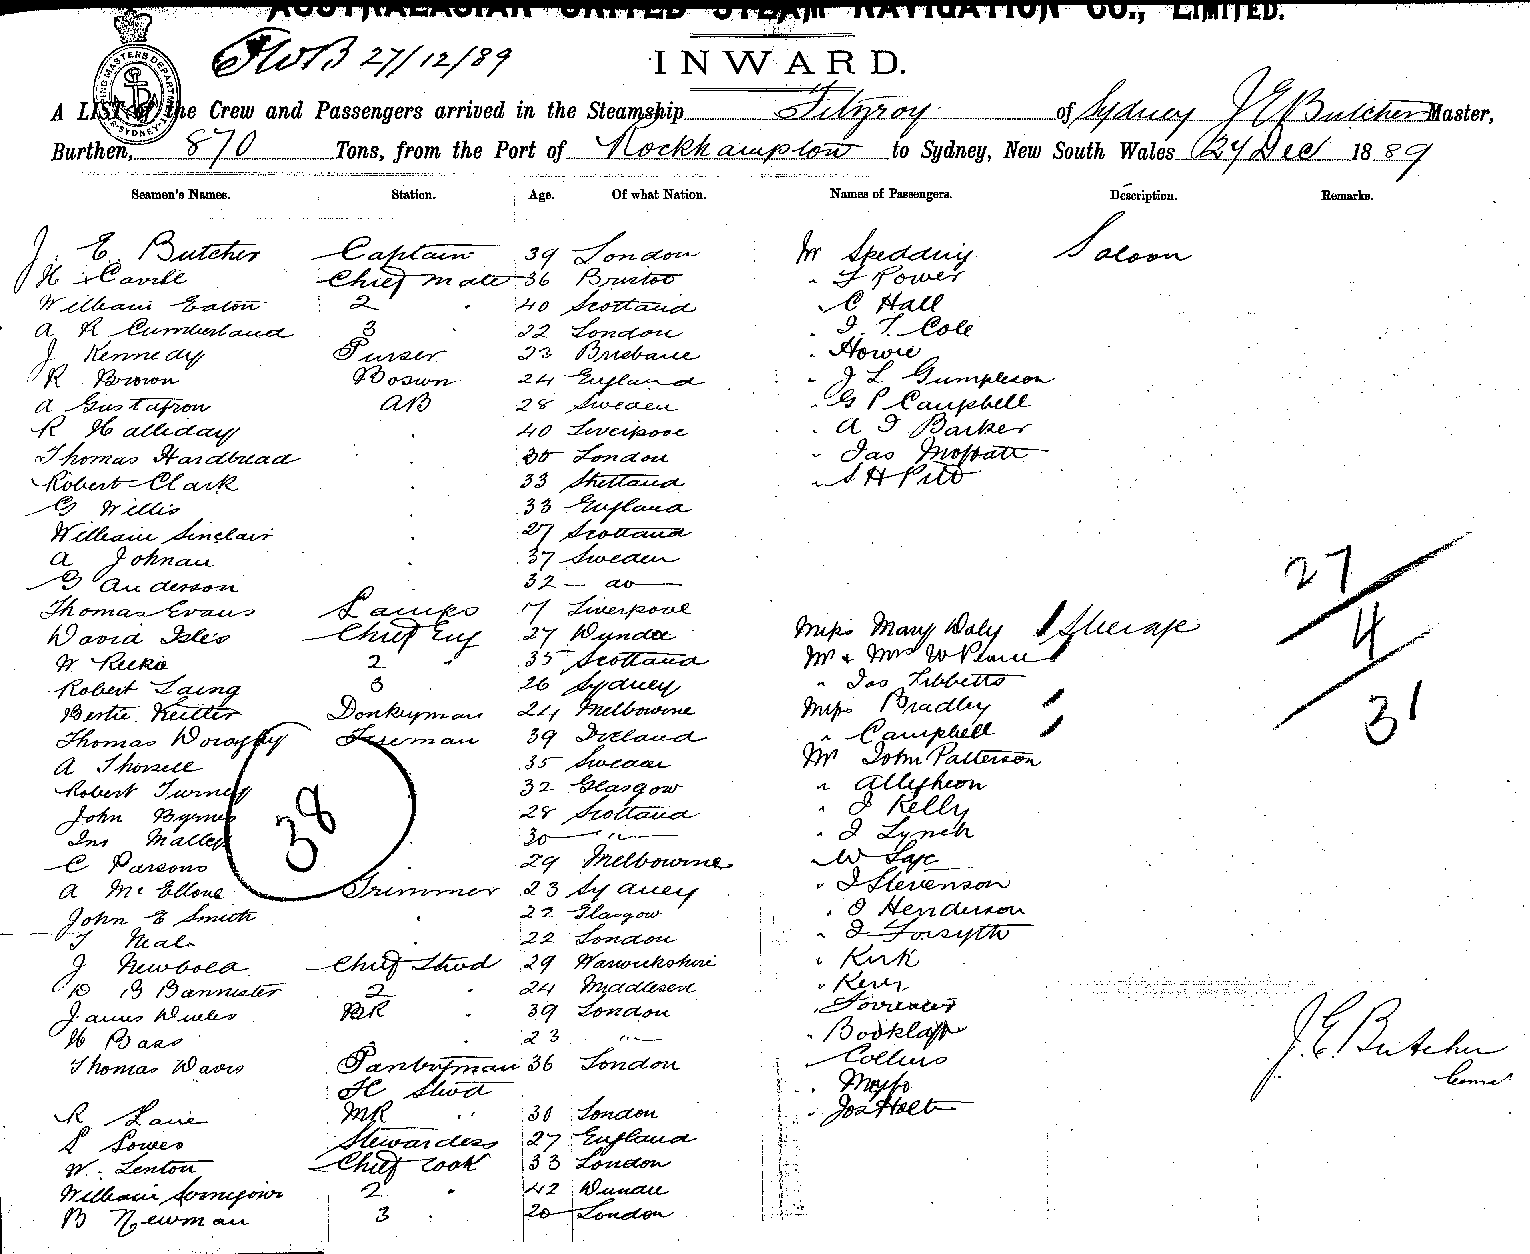 AUSTRALASIAN UNITED STEAM NAVIGATION CO., LIMITED.
27/12/89
INWARD.
A LIST of the Crew and Passengers arrived in the Steamship Fitzroy of Sydney J E Butcher Master,
Burthen, 870 Tons, from the Port of Rockhampton to Sydney, New South Wales 27 Dec 1889
Seamen's Names. Station. Age. Of what Nation. Names of Passengers. Description. Remarks.
J. E. Butcher Captain 39 London Mr Spedding Saloon
H Cavill Chief Mate 36 Bristol " F Rower
William Eaton 2 " 40 Scotland " C Hall
A R Cumberland 3 " 22 London " J. T. Cole
J Kennedy Purser 23 Brisbane " Howie
R Brown Bosun 24 England " J L Gumpleson
A Gustafson AB 28 Sweden " G P Campbell
R Halliday " 40 Liverpool " A J Barker
Thomas Hardbread " London " Jas Moffatt
Robert Clark " 33 Shetland " S H Pitt
G Willis " 33 England
William Sinclair " 27 Scotland
A Johnan " 37 Sweden
G Anderson 32 — do —
Thomas Evans Lamps 17 Liverpool
David Isles Chief Eng 27 Dundee Miss Mary Daly 1 Steerage
W 2 " 35 Scotland Mr & Mrs W Pearce 1
Robert Laing 3 26 Sydney " Jas Tibbetts
Bertie Donkeyman 24 Melbourne Miss Bradley 1
Thomas Fireman 39 Ireland " Campbell 1
A Thorsell 35 Sweden Mr John Patterson
Robert Turney 32 Glasgow "
John Byrnes 28 Scotland " J Kelly
30 — " — " J Lynch
C Parsons 29 Melbourne " W
A Trimmer 23 Sydney " J Stevenson
John E Smith " 22 Glasgow " J Henderson
T Neal 22 London " J Forsyth
J Newbold Chief Stwd 29 Warwickshire " Kirk
B Bannister 2 " 24 Middlesex " Kerr
James BR " 39 London " Forrester
H Bass 23 "
Thomas Davis Pantryman 36 London " Collins
Stwd
R Lane MR " 30 London " Jos Holt
S Lowes Stewardess 27 England
W. Lenton Chief Cook 33 London
William 2 " 42 Dundee
B Newman 3 " 20 London
38
27
4
31
J. E. Butcher